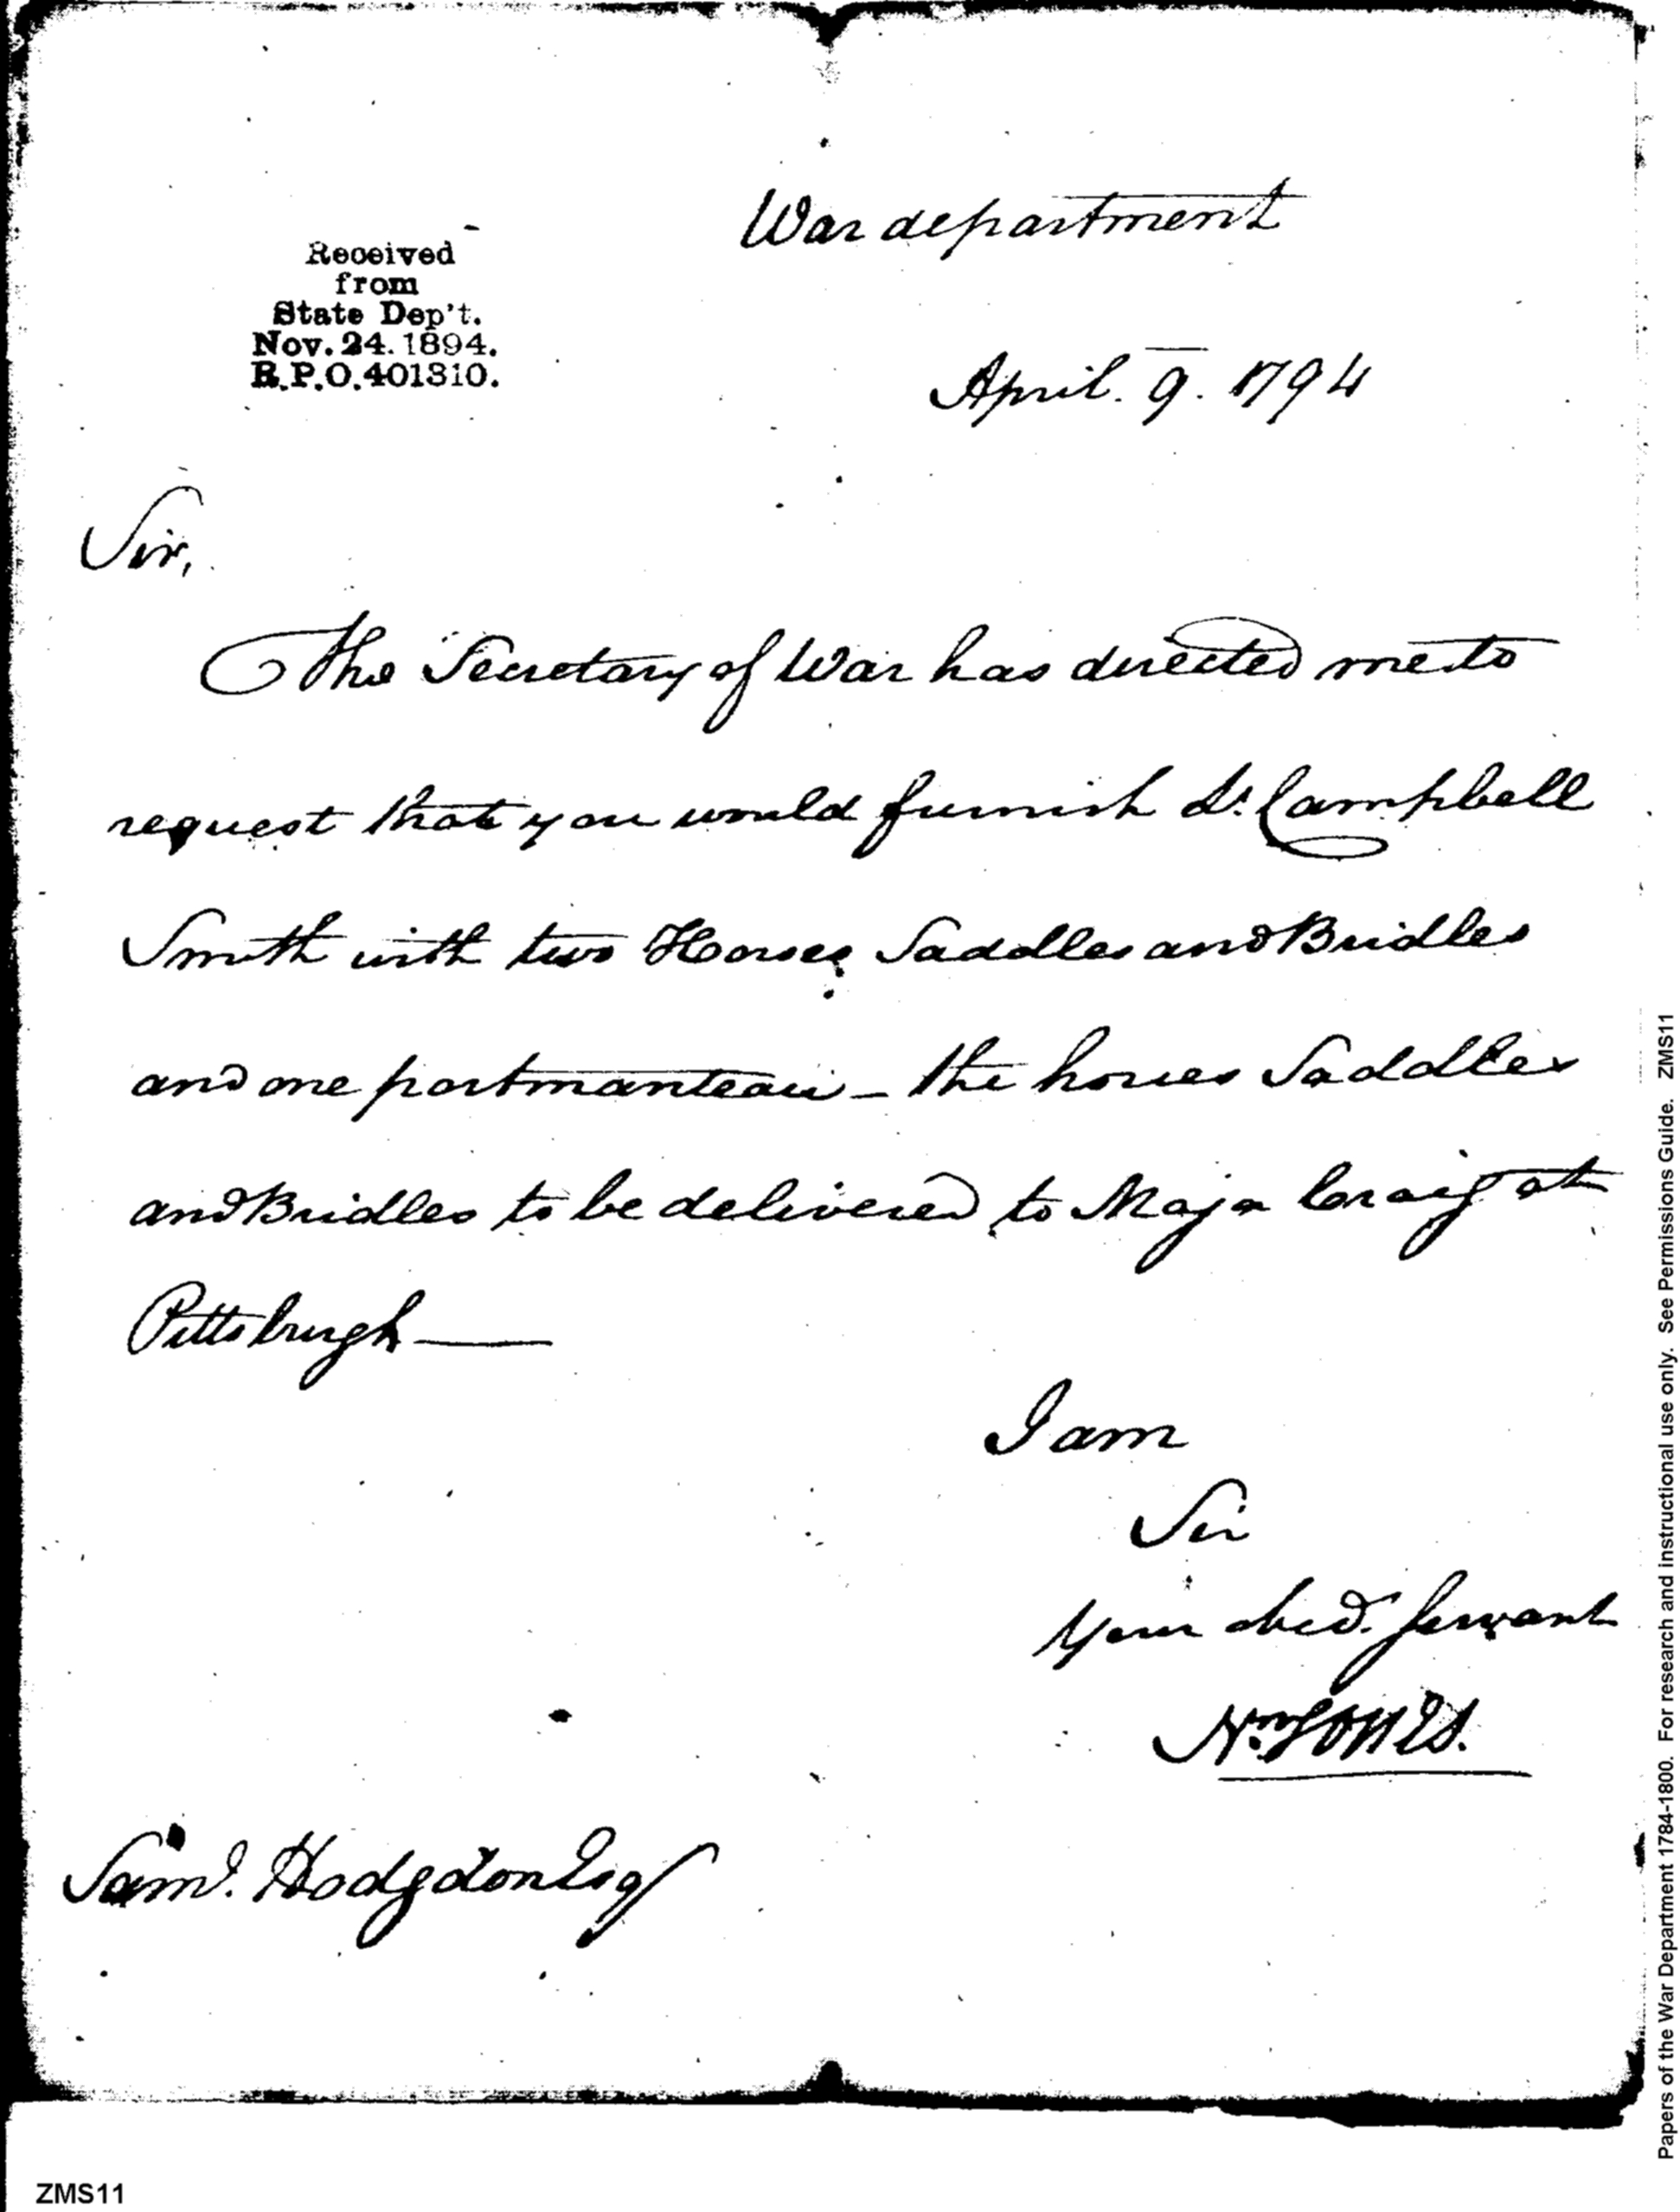 War department
Received
from
State Dep't.
Nov. 24. 1894.
R.P.O. 401310.
April. 9. 1794
Sir,
The Secretary of War has directed me to
request that you would furnish Lt. Campbell
Smith with two Horses, Saddles and Bridles
and one portmanteau – the horses Saddles
and Bridles to be delivered to Major Craig at
Pittsburgh —
I am
Sir
Your obed. Servant
Saml. Hodgdon Esq
Papers of the War Department 1784-1800. For research and instructional use only. See Permissions Guide. ZMS11
ZMS11